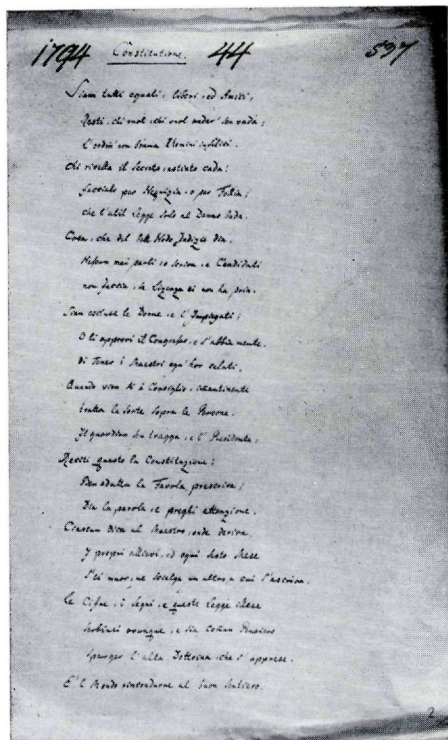 1794 Constitutione. 44 597
Siam tutti eguali, liberi, ed Amici,
Resti, chi vuol, chi vuol andar' sen vada;
L'ordin' non brama Uomini infelici.
Chi rivela il Secreto, estinto cada!
facciato per Nequizia, o per Follia;
che l'util Legge solo al Danno bada.
Cosa, che del Nodo Indizio dia,
Nessun mai parli, o scriva, e Candidati
non faccia, se Licenza ei non ha pria.
Sian escluse le Donne, e l'Impiegati;
O li approvi il Congresso, e s'abbia mente,
di Tener i Maestri ogn'hor celati.
Quando vien si à Consiglio, immantinente
tratta la Sorte sopra le Persone,
Il guardian sen tragga, e l' Presidente;
Reciti questo la Constituzione;
Ben adatta la Favola prescriva;
Dia la parola, e preghi attenzione.
Ciascun dica al Maestro, onde deriva
I propri allievi, ed ogni Mese
S'ei muor, ne scielge un altro, a cui l'ascriva.
Le Cifre, i Segni, e queste Legge
ovunque, e sia comun Pensiero
Sparger l'alta Dottrina, che s'apprese,
E 'l Mondo ricondurne al buon Sentiero.
2